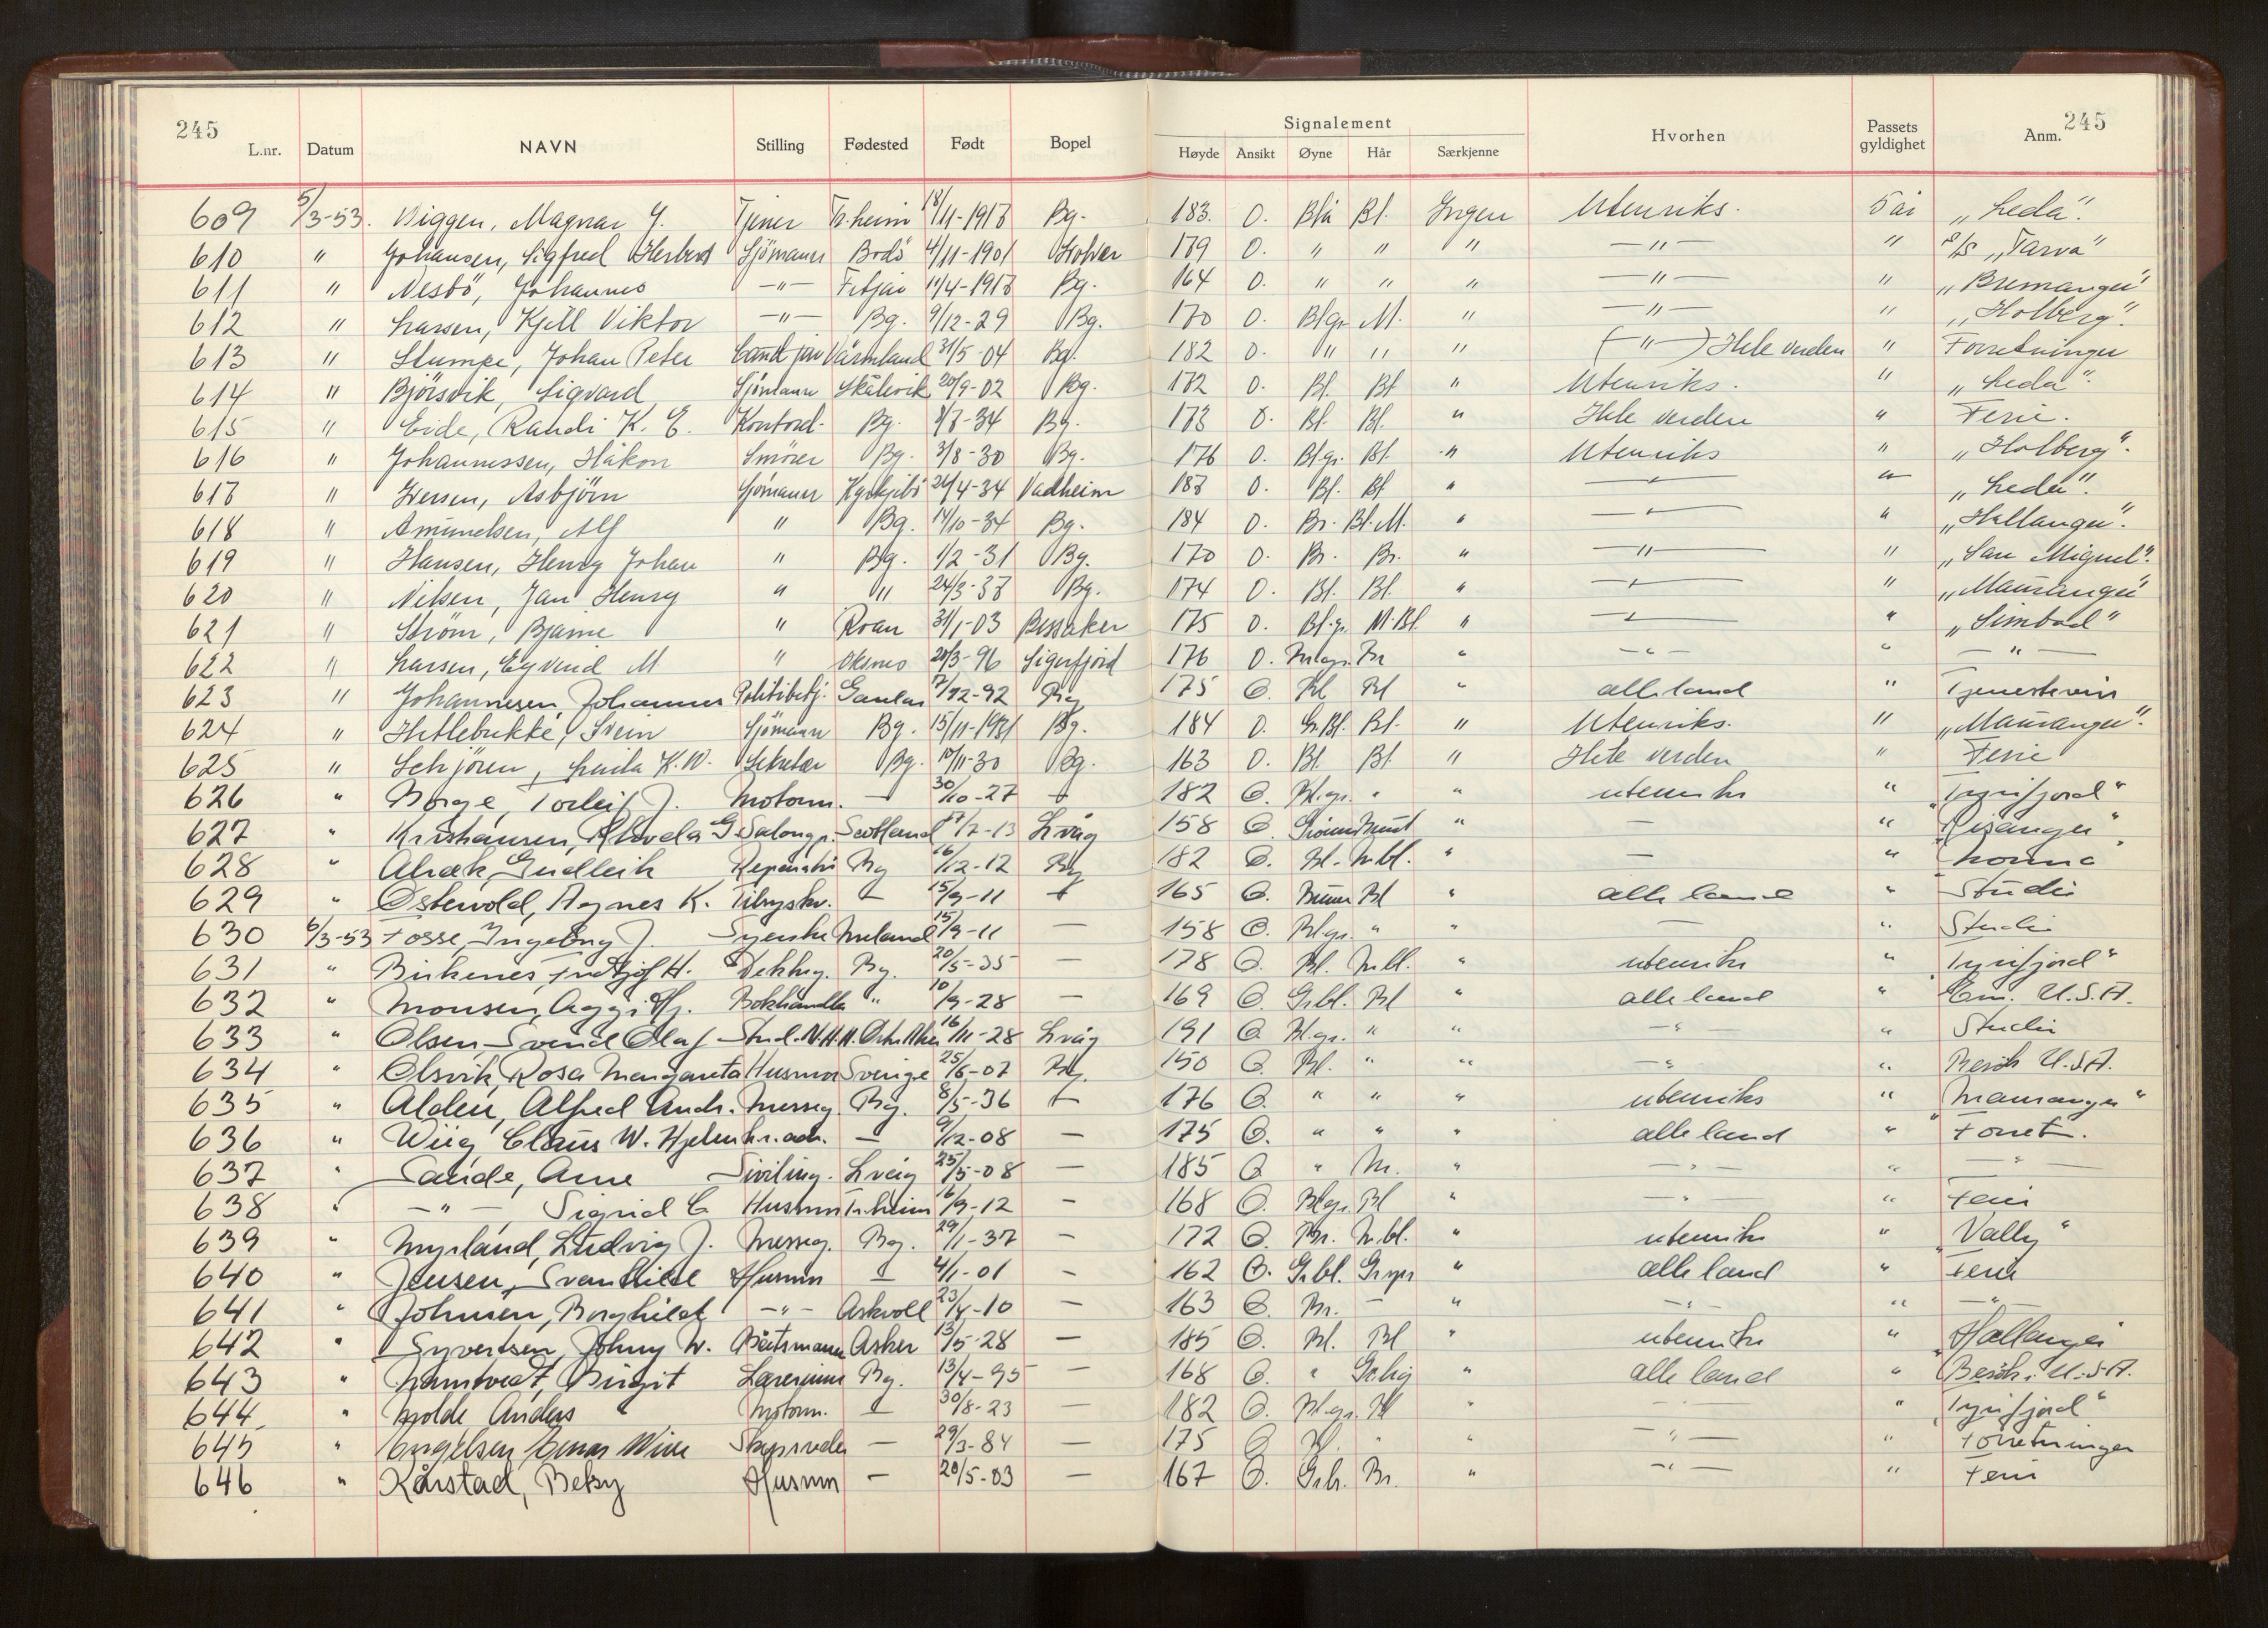 245 245
Signalement
L.nr. Datum NAVN Stilling Fødested Født Bopel Høyde Ansikt Øyne Hår Særkjenne Hvorhen Passets gyldighet Anm.
609 5/3-53. Viggen, Magnar J. Tjener Tr.heim 18/11-1917 Bg. 183. O. Blå Bl. Ingen Utenriks. 5 år „Leda".
610 " Johansen, Sigfred Herbert Sjömann Bodö 4/11-1901 179 O. " " " —"— " S/S „Tarva"
611 " Nesbö, Johannes —"— Fitjar 11/4-1917 Bg. 164 O. " " " —"— " „Bremanger"
612 " Larsen, Kjell Viktor —"— Bg. 9/12-29 Bg. 170 O. Blgr. M. " —"— " „Holberg".
613 " Stumpe, Johan Peter Värmland 31/5-04 Bg. 182 O. " " " (—"—) Hele verden " Forretninger
614 " Björsvik, Sigvard Sjömann Skålevik 20/9-02 Bg. 172 O. Bl. Bl " Utenriks. " „Leda".
615 " Eide, Randi K. E. Kontord. Bg. 8/7-34 Bg. 173 O. Bl. Bl. " Hele verden " Ferie.
616 " Johannessen, Håkon Smörer Bg. 3/8-30 Bg. 176 O. Blgr. Bl. " Utenriks " „Holberg".
617 " Iversen, Asbjörn Sjömann 24/4-34 Vadheim 187 O. Bl. Bl " —"— " „Leda".
618 " Amundsen, Alf " Bg. 14/10-34 Bg. 184 O. Br. Bl.M. " —"— " „Hallanger".
619 " Hansen, Henry Johan " Bg. 1/2-31 Bg. 170 O. Br. Br. " —"— " „San Miguel".
620 " Nilsen, Jan Henry " " 24/3-37 Bg. 174 O. Bl. Bl. " —"— " „Mauranger"
621 " Ström, Bjarne " Roan 31/1-03 Bessaker 175 O. Bl.gr. M.Bl. " —"— " „Simbad"
622 " Larsen, Eyvind M " Öksnes 20/3-96 Sigerfjord 176 O. Br " —"— " —"—
623 " Johannesen, Johannes Politibetj. Gaular 7/12-92 Bg 175 O. Bl Bl " alle land " Tjenestereis
624 " Hetlebakke, Svein Sjömann Bg. 15/11-1931 Bg. 184 O. Gr.Bl. Bl. " Utenriks. " „Mauranger".
625 " Schjören, Laila K.W. Sekretær Bg. 10/11-30 Bg. 163 O. Bl. Bl. " Hele verden " Ferie
626 " Borge, Torleif J. Motorm. — 30/10-27 — 182 O. Bl.gr. " " utenriks " „Tyrifjord"
627 " Kristiansen, G. Salongp. Scotland 17/7-13 L.våg 158 O. Brunt " — " „Risanger"
628 " Alvæk, Gudleik Reparatør Bg 16/12-12 Bg 182 O. Bl. M.bl. " — " „Norma"
629 " Østervold, Agnes K. 15/9-11 — 165 O. Brune Bl " alle land " Studie
630 6/3-53 Fosse, Ingeborg J. Syerske Meland 15/9-11 — 158 O. Blgr. " " — " Studie
631 " Birkenes, Fridtjof H. Dekksg. Bg. 20/5-35 — 178 O. Bl. M.bl. " utenriks " „Tyrifjord"
632 " Monsen, Aggi Hj. Bokhandler " 10/9-28 — 169 O. Gr.bl. Bl " alle land " Em. U.S.A.
633 " Olsen, Svend Olaf Stud. N.H.H. Østr. Aker 16/11-28 L.våg 191 O. Bl.gr. " " —"— " Studie
634 " Olsvik, Rosa Margareta Husmor Sverige 25/6-07 Bg. 150 O. Bl. " " —"— " Besök U.S.A.
635 " Alden, Alfred Andr. Messeg. Bg. 8/5-36 — 176 O. " " " utenriks " „Mauranger"
636 " Wiig, Claus W. Hjelm h.r.adv. — 9/12-08 — 175 O. " " " alle land " Forretn.
637 " Sande, Arne Siviling. L.våg 25/5-08 — 185 O " M. " —"— " —"—
638 " —"— , Sigrid C Husmor Tr.heim 16/9-12 — 168 O. Blgr. Bl " —"— " Ferie
639 " Myrland, Ludvig J. Messeg. Bg. 29/1-37 — 172 O. Br. M.bl. " utenriks " „Vally"
640 " Jensen, Svanhild Husmor — 4/1-01 — 162 O. Gr.bl. " alle land " Ferie
641 " Johnsen, Borghild —"— Askvoll 23/4-10 — 163 O. Br. — " —"— " —"—
642 " Syvertsen, Johny W. Båtsmann Asker 13/5-28 — 185 O. Bl. Bl " utenriks " „Hallanger
643 " Birgit Lærerinne Bg. 13/4-95 — 168 O. " " alle land " Besök i U.S.A.
644 " Molde Anders Motorm. — 30/8-23 — 182 O. Bl.gr. Bl " —"— " „Tyrifjord"
645 " Engelsen Skipsreder — 29/3-84 — 175 O Bl. " " —"— " Forretninger
646 " Kårstad, Betsy Husmor — 20/5-03 — 167 O. Br. " —"— " Ferie